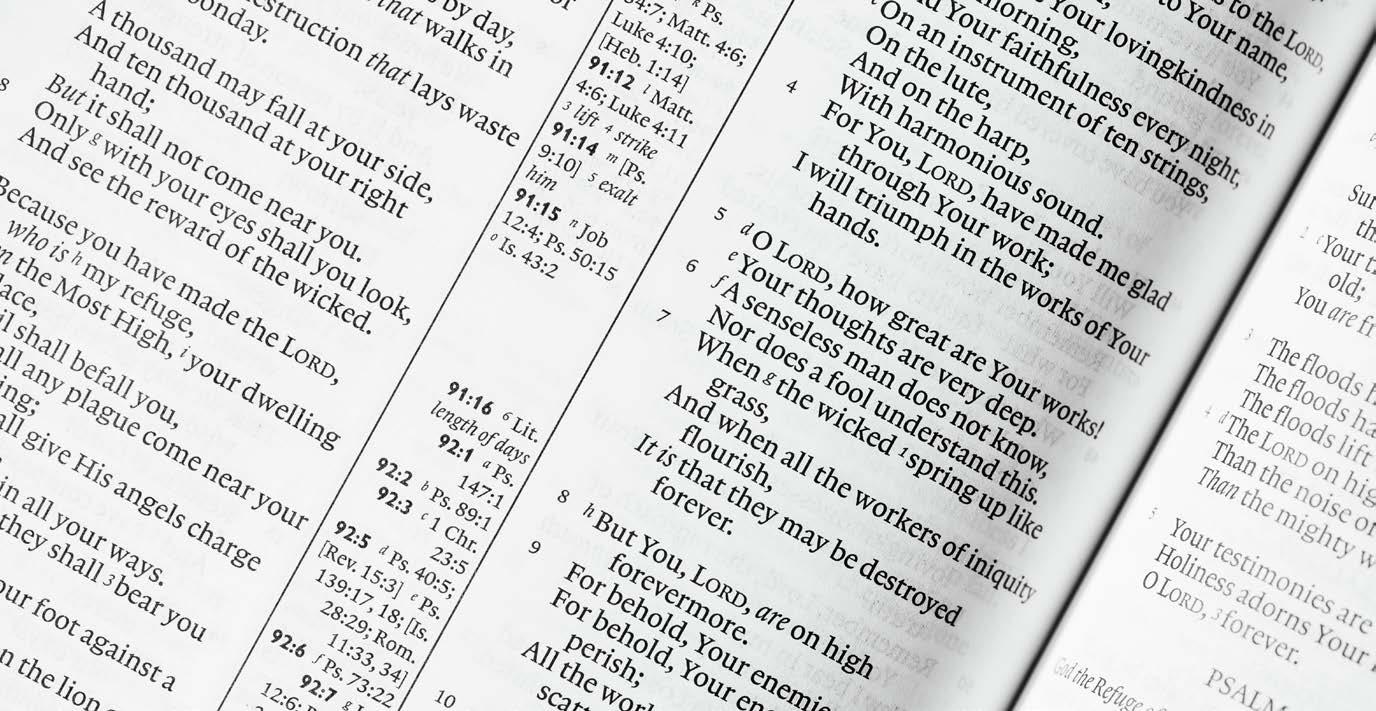 by day,
that walks in
struction that lays waste
onday.
A thousand may fall at your side,
And ten thousand at your right
hand;
But it shall not come near you.
8 Only g with your eyes shall you look,
And see the reward of the wicked.
Because you have made the LORD,
who is h my refuge,
the Most High, i your dwelling
lace,
il shall befall you,
all any plague come near your
ing;
all give His angels charge
in all your ways.
they shall 3 bear you
our foot against a
n the lion
Ps.
34:7; Matt. 4:6;
Luke 4:10;
[Heb. 1:14]
91:12 l Matt.
4:6; Luke 4:11
3 lift 4 strike
91:14 m [Ps.
9:10] 5 exalt
him
91:15 n Job
12:4; Ps. 50:15
o Is. 43:2
91:16 6 Lit.
length of days
92:1 a Ps.
147:1
92:2 b Ps. 89:1
92:3 c 1 Chr.
23:5
92:5 d Ps. 40:5;
[Rev. 15:3] e Ps.
139:17, 18; [Is.
28:29; Rom.
11:33, 34]
92:6 f Ps. 73:22
92:7 g
12:6;
s to the LORD,
to Your name,
Your lovingkindness in
morning,
Your faithfulness every night,
On an instrument of ten strings,
On the lute,
And on the harp,
With harmonious sound.
4 For You, LORD, have made me glad
through Your work;
I will triumph in the works of Your
hands.
5 d O LORD, how great are Your works!
e Your thoughts are very deep.
6 f A senseless man does not know,
Nor does a fool understand this.
7 When g the wicked 1 spring up like
grass,
And when all the workers of iniquity
flourish,
It is that they may be destroyed
forever.
8 h But You, LORD, are on high
forevermore.
9 For behold, Your enemie
For behold, Your en
perish;
All the wor
scatt
10
Sur
th
2 c Your t
old;
You are fr
3 The floods h
The floods ha
The floods lift
4 d The LORD on hig
Than the noise o
Than the mighty w
5 Your testimonies are
Holiness adorns Your
O LORD, 3 forever.
PSALM
God the Refuge of